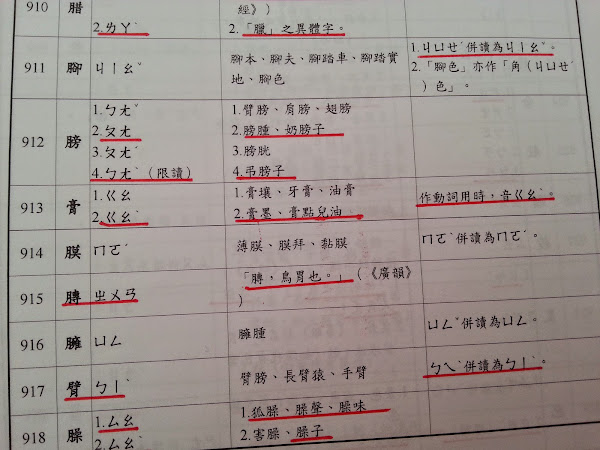 910 腊 經》)
2.ㄌㄚˋ 2.「臘」之異體字。
911 腳 ㄐㄧㄠˇ 腳本、腳夫、腳踏車、腳踏實地、腳色 1.ㄐㄩㄝˊ併讀為ㄐㄧㄠˇ。
2.「腳色」亦作「角(ㄐㄩㄝˊ)色」。
912 膀 1.ㄅㄤˇ 1.臂膀、肩膀、翅膀
2.ㄆㄤ 2.膀腫、奶膀子
3.ㄆㄤˊ 3.膀胱
4.ㄅㄤˋ(限讀) 4.吊膀子
913 膏 1.ㄍㄠ 1.膏壤、牙膏、油膏 作動詞用時,音ㄍㄠˋ。
2.ㄍㄠˋ 2.膏墨、膏點兒油
914 膜 ㄇㄛˊ 薄膜、膜拜、黏膜 ㄇㄛˋ併讀為ㄇㄛˊ。
915 膞 ㄓㄨㄢ 「膞,鳥胃也。」(《廣韻》)
916 臃 ㄩㄥ 臃腫 ㄩㄥˇ併讀為ㄩㄥ。
917 臂 ㄅㄧˋ 臂膀、長臂猿、手臂 ㄅㄟˋ併讀為ㄅㄧˋ。
918 臊 1.ㄙㄠ 1.狐臊、臊聲、臊味
2.ㄙㄠˋ 2.害臊、臊子